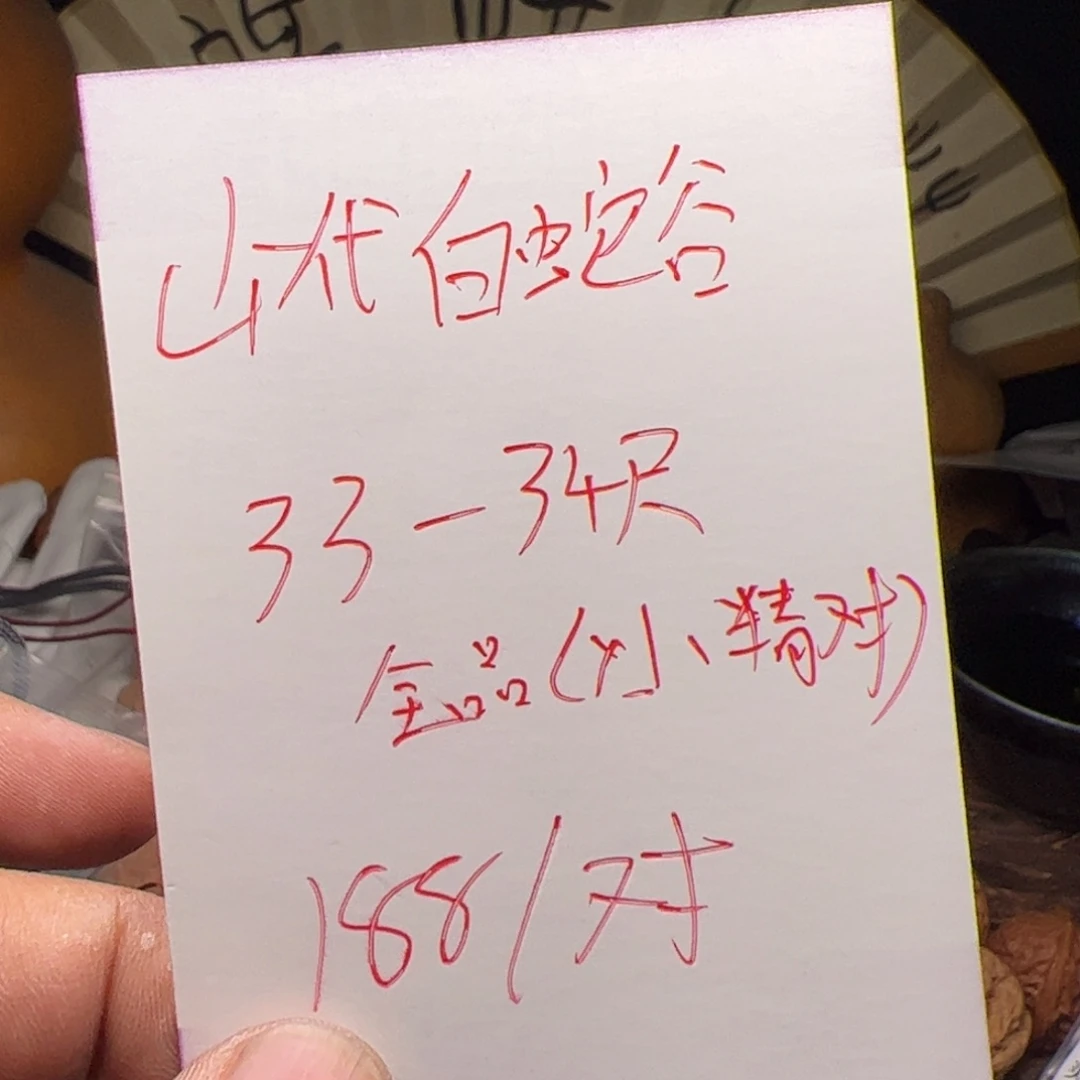 山代白蛇谷
33-34尺
全品(刈、精对)
188/对